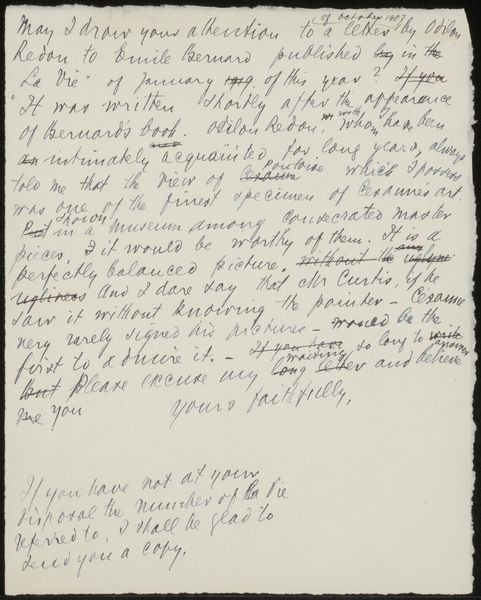 of October 1907
May I draw your attention to a letter by Odilon
Redon to Emile Bernard published by in the
"La Vie" of January 1919 of this year? If you
"It was written shortly after the appearance
of Bernard's book. Odilon Redon, with whom I have been
an intimately acquainted for long years, always
told me that the view of Cezanne Pontoise which I possess
was one of the finest specimen of Cezanne's art.
Put Shown in a museum among consecrated master
pieces, I it would be worthy of them. It is a
perfectly balanced picture. without the any
ugliness And I dare say that Mr Curtis, if he
saw it without knowing the painter – Cezanne
very rarely signed his pictures – would be the
first to admire it. – If you have so long to write answer
but Please excuse my waiting long letter and believe
me you
Yours faithfully,
If you have not at your
disposal the number of La Vie
referred to, I shall be glad to
send you a copy.